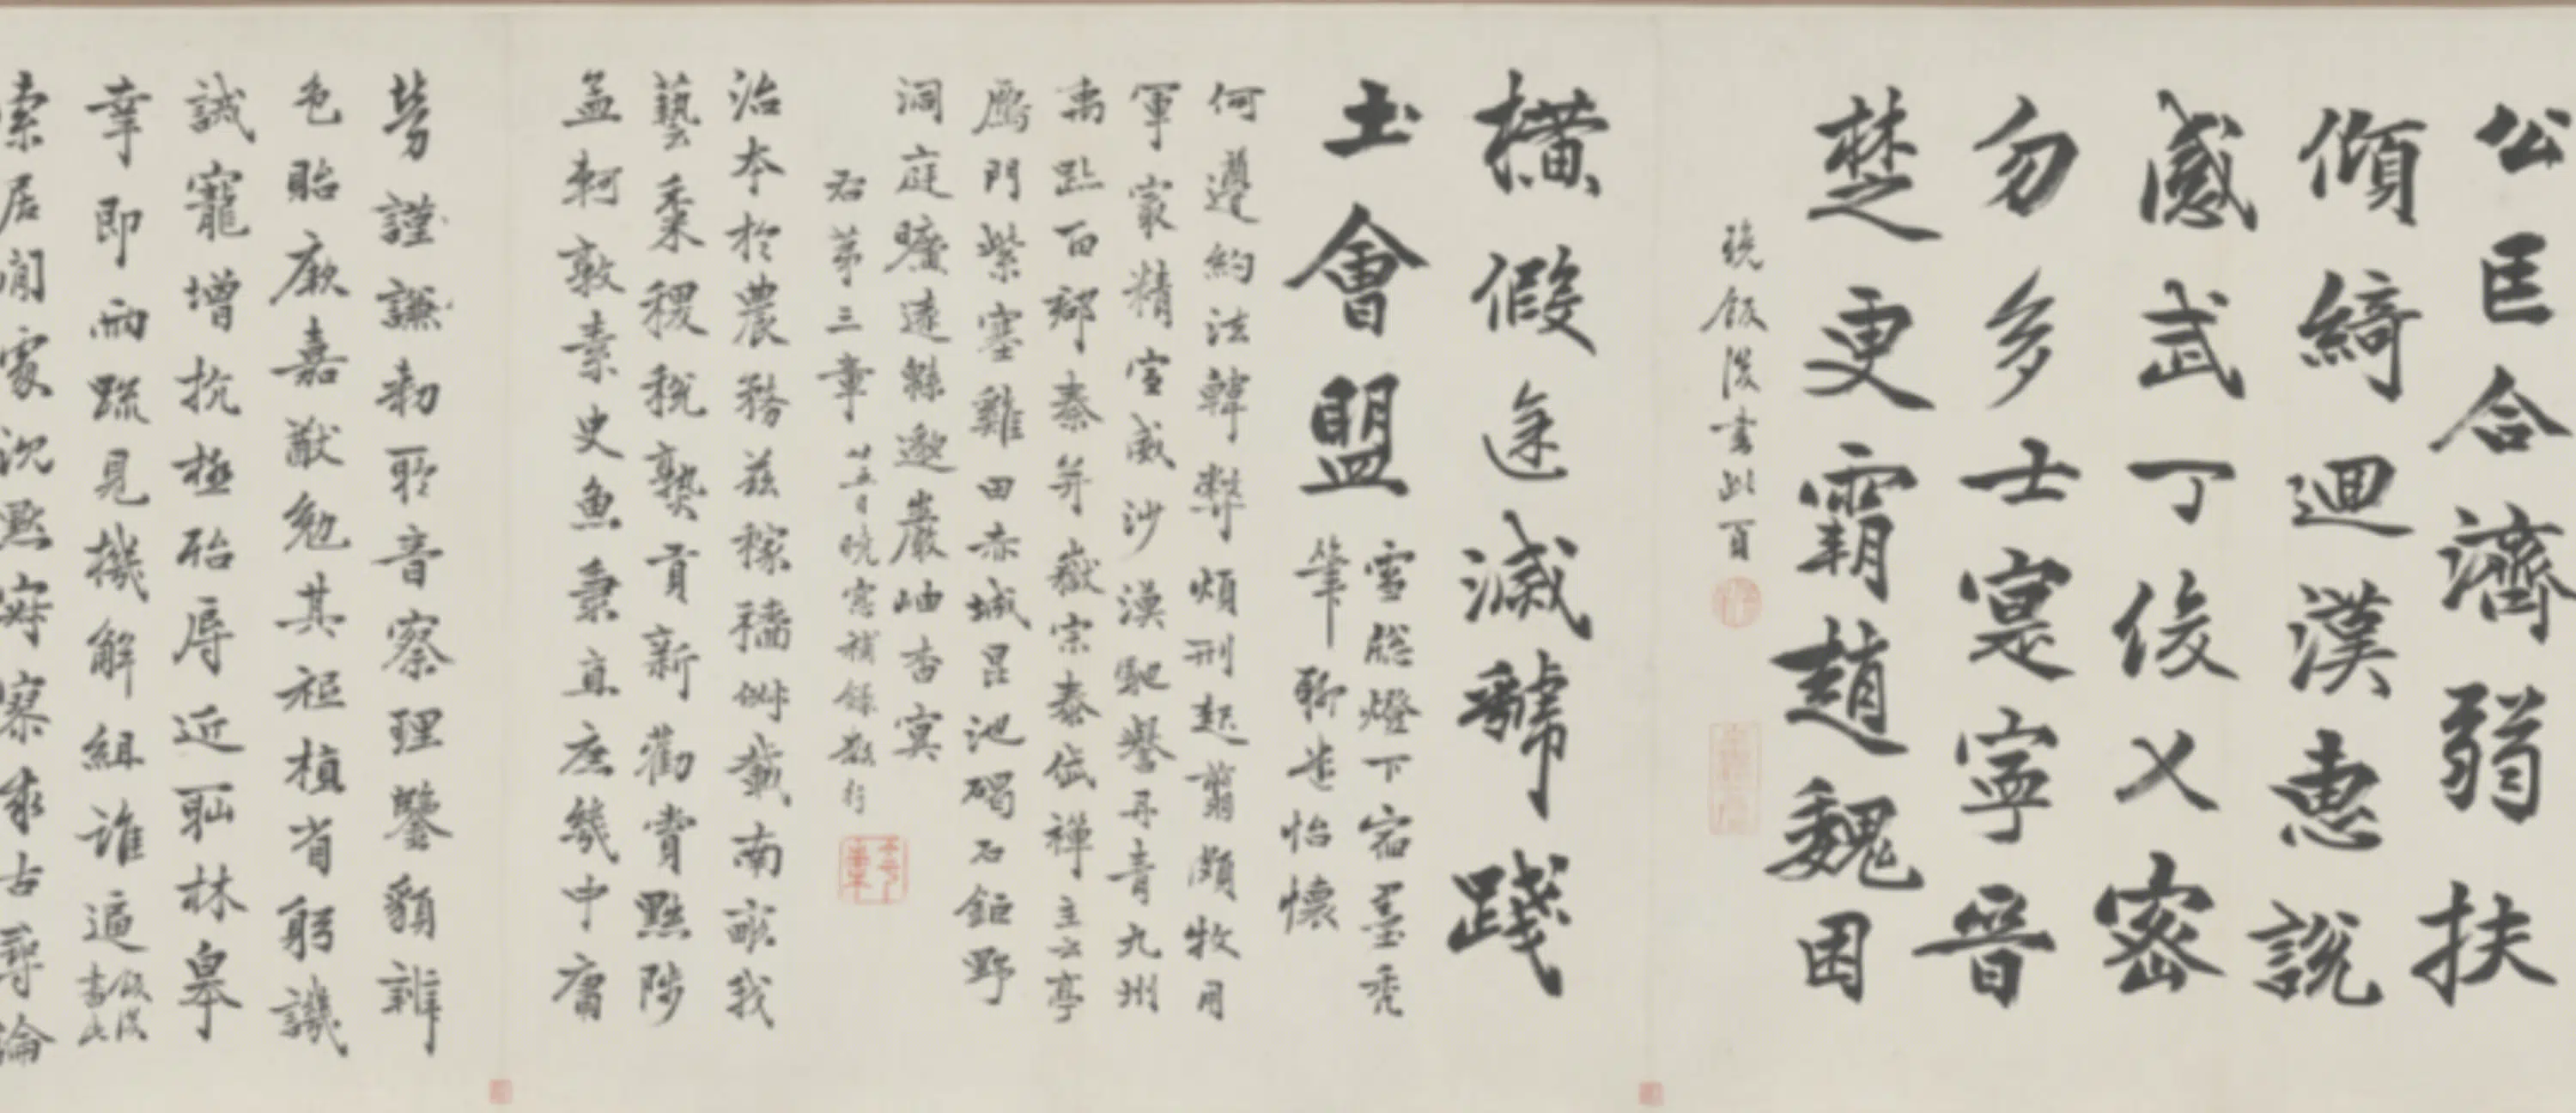 公匡合濟弱扶
傾綺迴漢惠說
感武丁俊乂密
勿多士寔寧晉
楚更霸趙魏困
晚飯後書此百
橫假途滅虢踐
土會盟
雪牕燈下宿墨禿
筆聊遣怡懷
何遵約法韓弊煩刑起翦頗牧用
軍寂精宣威沙漠馳譽丹青九州
禹跡百郡秦并嶽宗泰岱禪主云亭
鴈門紫塞雞田赤城昆池碣石鉅野
洞庭曠遠緜邈巖岫杳冥
右第三章 廿五日晚窓補錄數行
治本於農務茲稼穡俶載南畝我
藝黍稷稅熟貢新勸賞黜陟
孟軻敦素史魚秉直庶幾中庸
勞謹謙勑聆音察理鑒貌辨
色貽厥嘉猷勉其祗植省躬譏
誡寵增抗極殆辱近恥林皋
幸即兩疏見機解組誰逼
飯後
書此
索居閒處沉默寂寥求古尋論